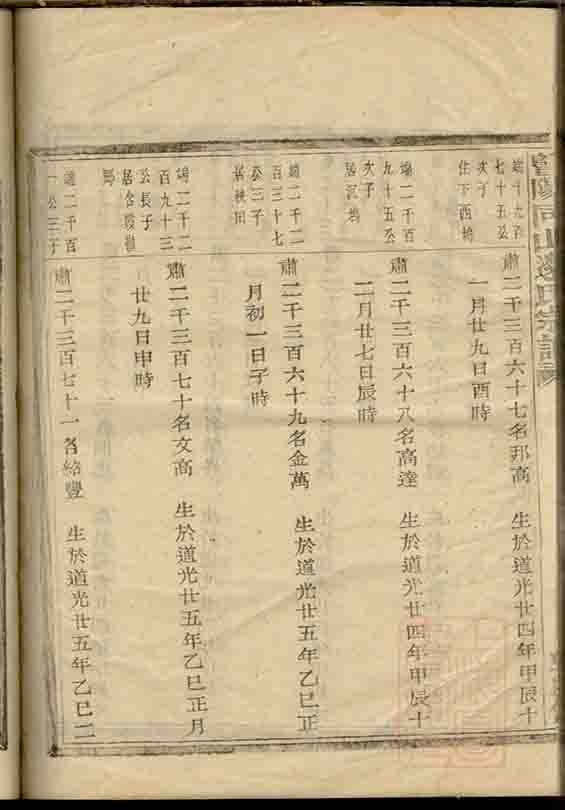 暨陽同山邊氏宗譜
端十九百
七十五公
次子
住下西塢
肅二千三百六十七名邦高 生於道光廿四年甲辰十
一月廿九日酉時
端二千百
九十五公
次子
居泥塢
肅二千三百六十八名高達 生於道光廿四年甲辰十
二月廿七日辰時
端二千二
百三十七
公三子
居秧田
肅二千三百六十九名金萬 生於道光廿五年乙巳正
月初一日子時
端二千二
百九十三
公長子
居含
肅二千三百七十名文高 生於道光廿五年乙巳正月
廿九日申時
端二千百
一公三子
肅二千三百七十一名紹豐 生於道光廿五年乙巳二